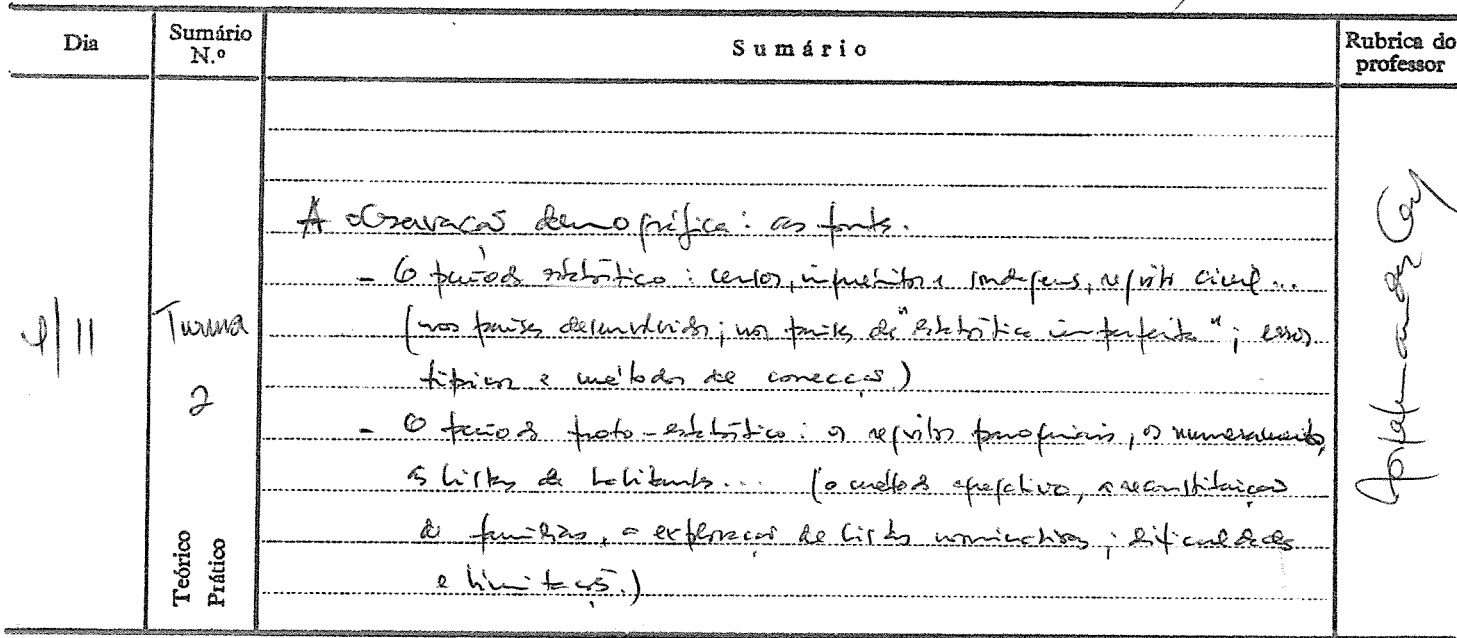 Dia
Sumário N.º
Sumário
Rubrica do professor
A observação demográfica: as fontes.
- O período estatístico: censos, inquéritos e sondagens, registo civil...
(nos países desenvolvidos; nos países de "estatística imperfeita"; erros
típicos e métodos de correcção)
- O período proto-estatístico: os registos paroquiais, os numeramentos,
as listas de habitantes... (o método agregativo, a reconstituição
de famílias, a exploração de listas nominativas; dificuldades
e limitações.)
/11
Turma
2
Teórico
Prático